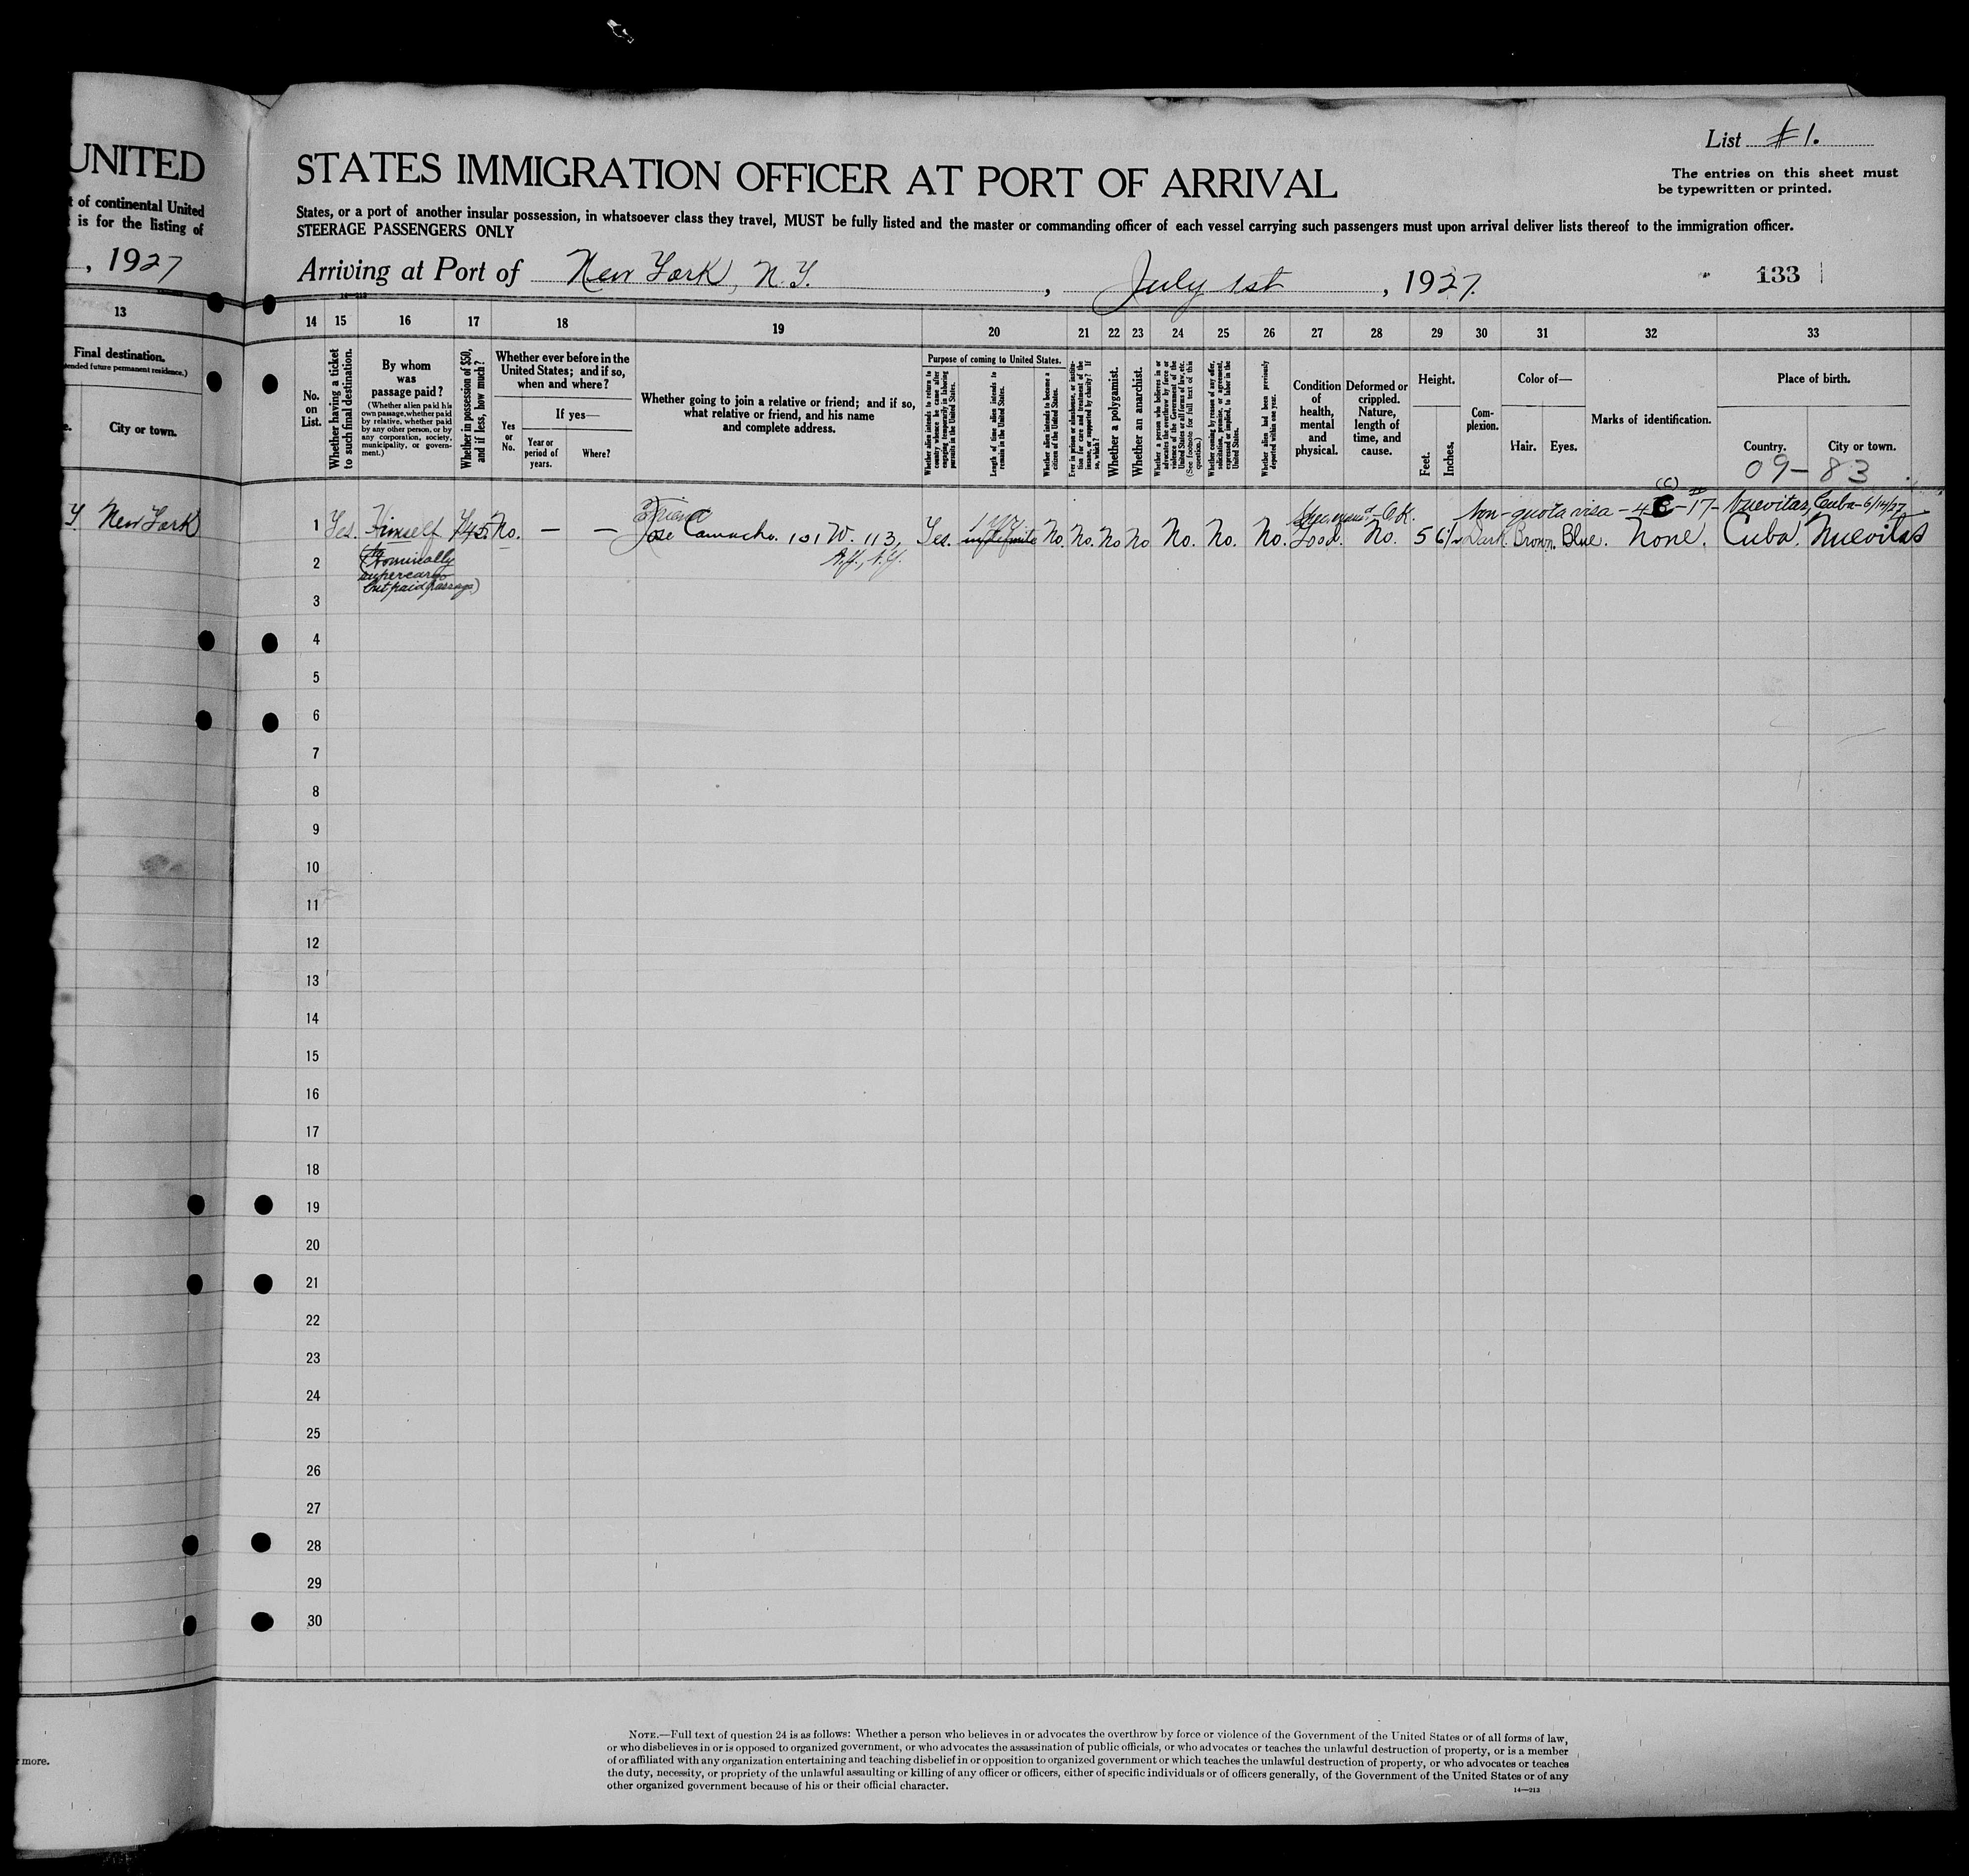 UNITED
t of continental United
is for the listing of
, 1927
13
Final destination.
ended future permanent residence.)
City or town.
Y New York
more.
List #1.
STATES IMMIGRATION OFFICER AT PORT OF ARRIVAL
The entries on this sheet must
be typewritten or printed.
States, or a port of another insular possession, in whatsoever class they travel, MUST be fully listed and the master or commanding officer of each vessel carrying such passengers must upon arrival deliver lists thereof to the immigration officer.
STEERAGE PASSENGERS ONLY
Arriving at Port of New York, N.Y. , July 1st , 1927.
133
14—213
14 15 16 17 18 19 20 21 22 23 24 25 26 27 28 29 30 31 32 33
No. on List.
Whether having a ticket to such final destination.
By whom was passage paid?
(Whether alien paid his own passage, whether paid by relative, whether paid by any other person, or by any corporation, society, municipality, or government.)
Whether in possession of $50, and if less, how much?
Whether ever before in the United States; and if so, when and where?
Yes or No.
If yes—
Year or period of years.
Where?
Whether going to join a relative or friend; and if so, what relative or friend, and his name and complete address.
Purpose of coming to United States.
Whether alien intends to return to country whence he came after engaging temporarily in laboring pursuits in the United States.
Length of time alien intends to remain in the United States.
Whether alien intends to become a citizen of the United States.
Ever in prison or almshouse, or institution for care and treatment of the insane, or supported by charity? If so, which?
Whether a polygamist.
Whether an anarchist.
Whether a person who believes in or advocates the overthrow by force or violence of the Government of the United States or all forms of law, etc. (See footnote for full text of this question.)
Whether coming by reason of any offer, solicitation, promise, or agreement, expressed or implied, to labor in the United States.
Whether alien had been previously deported within one year.
Condition of health, mental and physical.
Deformed or crippled. Nature, length of time, and cause.
Height.
Feet.
Inches.
Complexion.
Color of—
Hair.
Eyes.
Marks of identification.
Place of birth.
Country.
City or town.
09—83
(C)
Friend O.K. Non-quota visa - 4 C - 17 - Nuevitas, Cuba - 6/14/27
1 Yes. Himself $45. No. — — Jose Camacho. 101 W. 113, Yes. indefinite No. No. No No No. No. No. Good. No. 5 6½ Dark. Brown. Blue. None. Cuba. Nuevitas
N.Y., N.Y.
(Nominally
supercargo
but paid passage)
2
3
4
5
6
7
8
9
10
11
12
13
14
15
16
17
18
19
20
21
22
23
24
25
26
27
28
29
30
NOTE.—Full text of question 24 is as follows: Whether a person who believes in or advocates the overthrow by force or violence of the Government of the United States or of all forms of law,
or who disbelieves in or is opposed to organized government, or who advocates the assassination of public officials, or who advocates or teaches the unlawful destruction of property, or is a member
of or affiliated with any organization entertaining and teaching disbelief in or opposition to organized government or which teaches the unlawful destruction of property, or who advocates or teaches
the duty, necessity, or propriety of the unlawful assaulting or killing of any officer or officers, either of specific individuals or of officers generally, of the Government of the United States or of any
other organized government because of his or their official character.
14—213